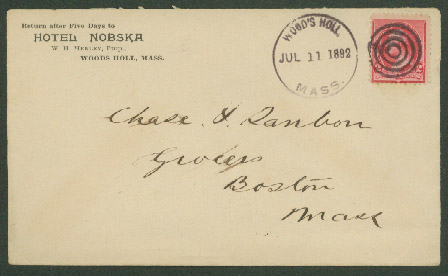 Return after Five Days to
HOTEL NOBSKA
W. H. Prop.
WOODS HOLL, MASS.
WOOD'S HOLL
JUL 11 1892
MASS.
Chase & Sanborn
Grocers
Boston
Mass